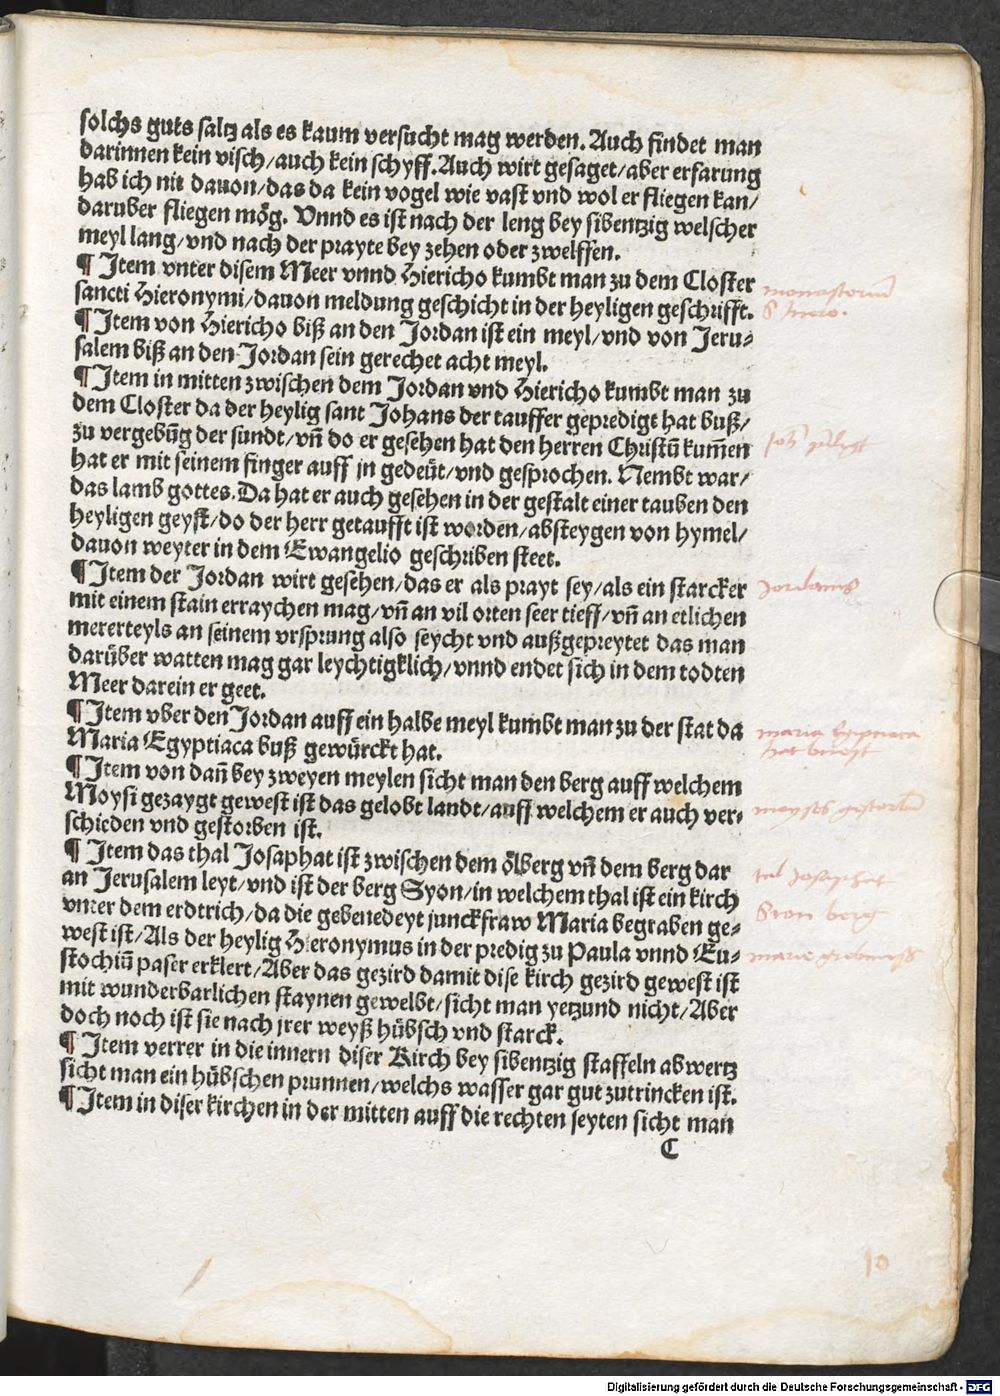 solchs guts saltz als es kaum versucht mag werden. Auch findet man
darinnen kein visch/auch kein schyff. Auch wirt gesaget/aber erfarung
hab ich nit dauon/das da kein vogel wie vast vnd wol er fliegen kan/
daruber fliegen mög. Vnnd es ist nach der leng bey sibentzig welscher
meyl lang/vnd nach der prayte bey zehen oder zwelffen.
¶ Item vnter disem Meer vnnd Hiericho kumbt man zu dem Closter
sancti Hieronymi/dauon meldung geschicht in der heyligen geschrifft.
¶ Item von Hiericho biß an den Jordan ist ein meyl/vnd von Jeru⸗
salem biß an den Jordan sein gerechet acht meyl.
¶ Item in mitten zwischen dem Jordan vnd Hiericho kumbt man zu
dem Closter da der heylig sant Johans der tauffer gepredigt hat buß/
zu vergebūg der sundt/vñ do er gesehen hat den herren Christū kum̄en
hat er mit seinem finger auff jn gedeüt/vnd gesprochen. Nembt war/
das lamb gottes. Da hat er auch gesehen in der gestalt einer tauben den
heyligen geyst/do der herr getaufft ist worden/absteygen von hymel/
dauon weyter in dem Ewangelio geschriben steet.
¶ Item der Jordan wirt gesehen/das er als prayt sey/als ein starcker
mit einem stain erraychen mag/vñ an vil orten seer tieff/vñ an etlichen
mererteyls an seinem vrsprung also seycht vnd außgepreytet das man
darüber watten mag gar leychtigklich/vnnd endet sich in dem todten
Meer darein er geet.
¶ Item vber den Jordan auff ein halbe meyl kumbt man zu der stat da
Maria Egyptiaca buß gewürckt hat.
¶ Item von dañ bey zweyen meylen sicht man den berg auff welchem
Moysi gezaygt gewest ist das gelobt landt/auff welchem er auch ver⸗
schieden vnd gestorben ist.
¶ Item das thal Josaphat ist zwischen dem ölberg vñ dem berg dar
an Jerusalem leyt/vnd ist der berg Syon/in welchem thal ist ein kirch
vnter dem erdtrich/da die gebenedeyt junckfraw Maria begraben ge⸗
west ist/Als der heylig Hieronymus in der predig zu Paula vnnd Eu⸗
stochiū paser erklert/Aber das gezird damit dise kirch gezird gewest ist
mit wunderbarlichen staynen gewelbt/sicht man yetzund nicht/Aber
doch noch ist sie nach jrer weyß hübsch vnd starck.
¶ Item verrer in die innern diser Kirch bey sibentzig staffeln abwertz
sicht man ein hübschen prunnen/welchs wasser gar gut zutrincken ist.
¶ Item in diser kirchen in der mitten auff die rechten seyten sicht man
C
Jordanis
maria Egiptiaca
tal Josaphat
Sion berg
10
Digitalisierung gefördert durch die Deutsche Forschungsgemeinschaft - DFG